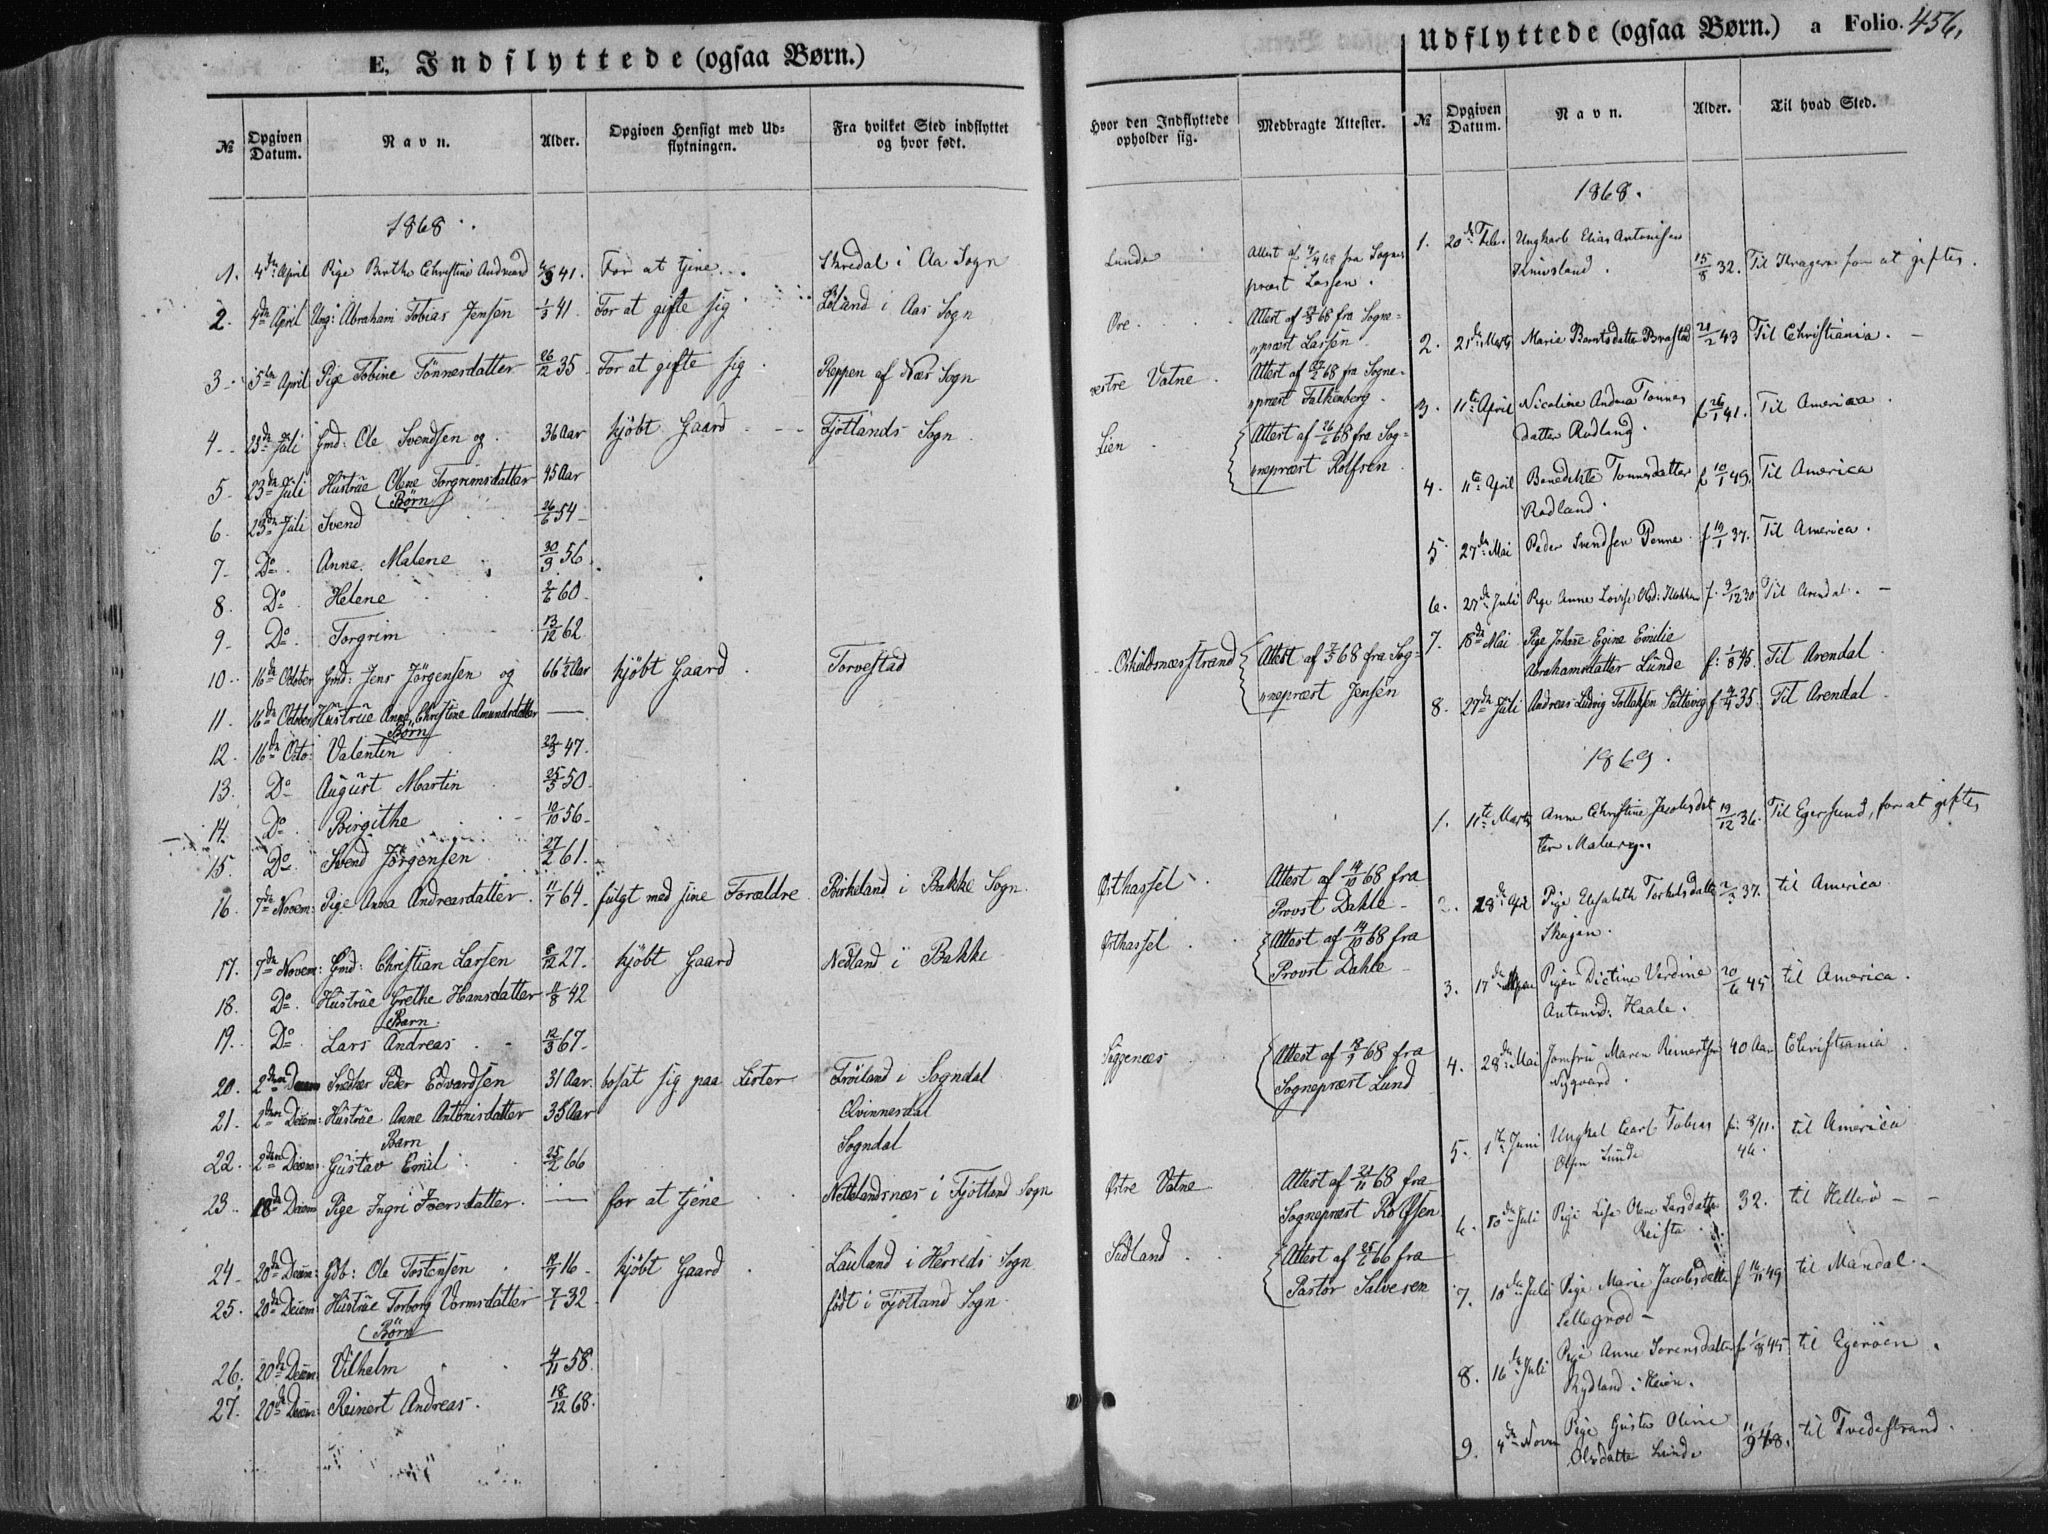 E. Indflyttede (ogsaa Børn.)
№ Opgiven Datum. Navn. Alder. Opgiven Hensigt med Udflytningen. Fra hvilket Sted indflyttet og hvor født.
1868.
1. 4de April Pige Berthe Christine Andreasd 41. For at tjene Skredal i Aa Sogn
2. 4de April Ung: Abraham Tobias Jensen 1/3 41. For at gifte sig Løland i Aas Sogn
3. 5te April Pige Tobine Tönnesdatter 26/12 35 For at gifte sig Reppen af Næs Sogn
4. 23de Juli Gmd: Ole Svendsen og 36 Aar kjöbt Gaard Fjotlands Sogn
5. 23de Juli Hustrue Olene Torgrimsdatter 45 Aar
Børn
6. 23de Juli Svend 26/6 54
7. Do Anne Malene 30/9 56.
8. Do Helene 2/6 60
9. Do Torgrim 13/12 62
10. 16de October Gmd: Jens Jörgensen og 66 1/2 Aar kjöbt Gaard Torvestad
11. 16de October Hustrue Anne Christine Amundsdatter —
Børn
12. 16de Octo: Valentin 22/3 47.
13. Do August Martin 25/3 50
14. Do Birgithe 10/10 56
15. Do Svend Jörgensen 27/2 61.
16. 7de Novem: Pige Anna Andreasdatter 11/7 64 fulgt med sine Forældre Birkeland i Bakke Sogn
17. 7de Novem: Gmd: Christian Larsen 8/12 27. kjöbt Gaard Nedland i Bakke
18. Do Hustrue Grethe Hansdatter 11/8 42
Barn
19. Do Lars Andreas 12/3 67
20. 2den Decem Snedker Peder Edvardsen 31 Aar. bosat sig paa Lister Fröiland i Sogndal
21. 2den Decem: Hustrue Anne Antonisdatter 35 Aar Qvinnesdal
Barn
22. 2den Decem: Gustav Emil 25/2 66 Sogndal
23. 18de Decem Pige Ingri Iversdatter — for at tjene Netlandsnæs i Fjotland Sogn
24. 20de Decem: Gdb: Ole Tostensen 12/7 16 kjöbt Gaard Lauland i Herreds Sogn
25. 20de Decem: Hustrue Torborg Vormsdatter 7/1 32 födt i Fjotland Sogn
Børn
26. 20de Decem: Vilhelm 4/11 58.
27. 20de Decem: Reinert Andreas 18/12 68.
Hvor den Indflyttede opholder sig. Medbragte Attester.
Lunde Attest af 4/4 68 fra Sogne-
præst Lassen.
Ore Attest af 68 fra Sogne-
præst Lassen
vestre Vatne Attest af 68 fra Sogne-
præst Falkenberg
Lien Attest af 26/6 68 fra Sog-
nepræst Rolfsen
Oskildsnæsstrand Attest af 68 fra Sog-
nepræst Jensen
Østhassel Attest af 14/10 68 fra
Provst Dahle
Østhassel Attest af 14/10 68 fra
Provst Dahle
Siggenæs Attest af 18/9 68 fra
Sognepræst Lund
Østre Vatne Attest af 21/11 68 fra
Sognepræst Rolfsen
Sødland Attest af 25/6 66 fra
Pastor Salvesen
Udflyttede (ogsaa Børn.) a Folio. 456.
№ Opgiven Datum. Navn. Alder. Til hvad Sted.
1868.
1. 20de Feb. Ungkarl Elias Antonisen
15/8 32. Til Kragerø for at giftes.
2. 21de Marts Marie Berntsdatter Brastad 21/2 43 Til Christiania.
3. 11te April Nicoline Andrea Tønnes
datter Rødland. f 26/1 41. Til America
4. 11te April Benedikte Tønnesdatter f 10/1 49. Til America
Rødland.
5. 27de Mai Peder Svendsen Penne f 19/1 37. Til America.
6. 27de Juli Pige Anne Lovise Olsd: f. 9/12 30 Til Arendal.
7. 18de Mai Pige Johane Egine Emilie
Abrahamsdatter Lunde f: 1/8 45. Til Arendal
8. 27de Juli Andreas Ludvig Tollaksen f 35. Til Arendal
1869.
1. 11te Marts Anne Christine Jacobsdat 19/12 36. Til Egersund, for at giftes
ter
2. 28de Apr Pige Elisabeth Torkelsdatter 37. til America
Skagen.
3. 17de Pigen Dictine Verdine 20/6 45 til America.
Antonsd: Haale.
4. 28de Mai Jomfru Maren Reinertsen 40 Aar Christiania
Nygaard.
5. 1te Juni Ungkal Carl Tobias fr: 8/11. til America
Olsen Lunde 46.
6. 10de Juli Pige Lise Olene Larsdatter 32. til Hellerö
7. 10de Juli Pige Marie Jacobsdatter f 49 til Mandal.
8. 16de Juli Pige Anne Sorensdatter f 1/8 45 til Egerøen.
Rydland i
9. 4de Novem Pige Gusta Oline
Olsdatter Lunde 11/9 48. til Tvedestrand.